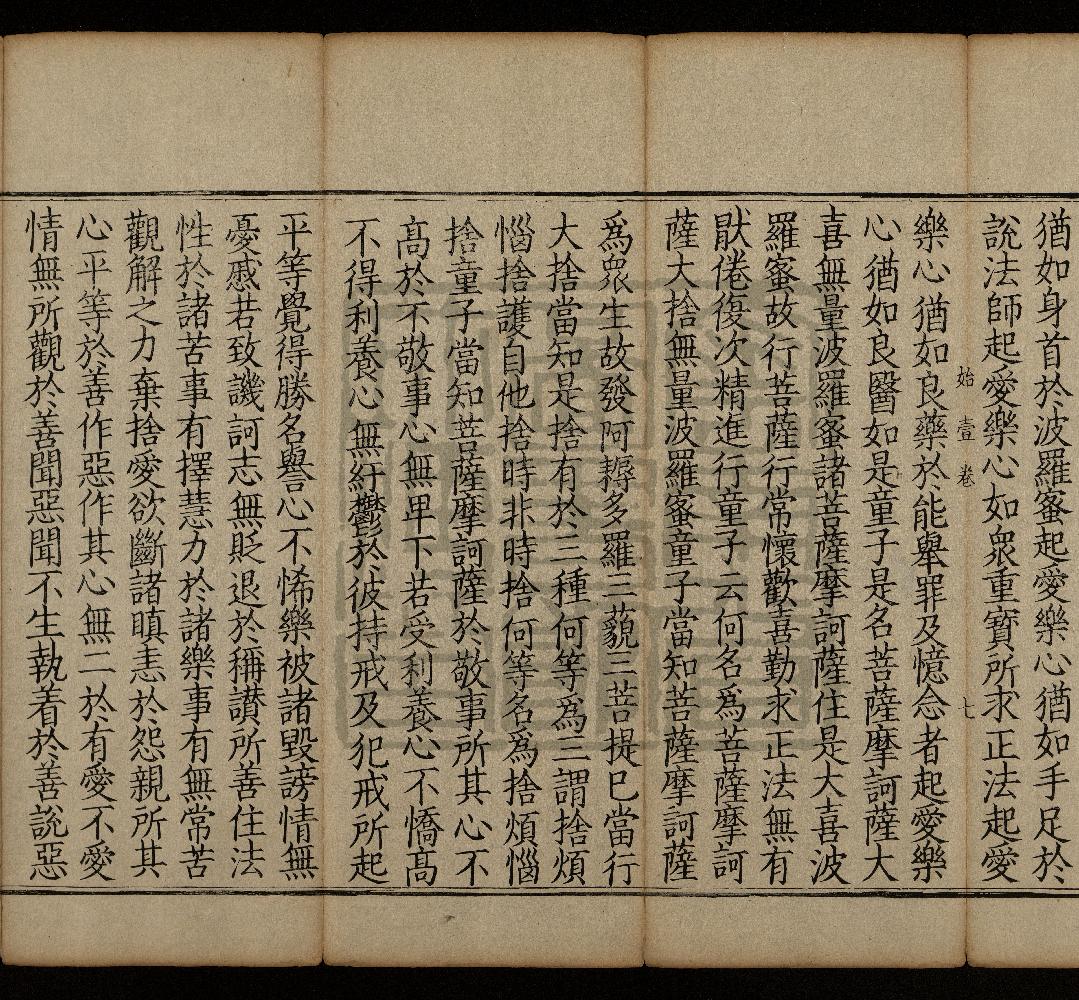 猶如身首於波羅蜜起愛樂心猶如手足於
說法師起愛樂心如衆重寳所求正法起愛
始 壹 卷 七
樂心猶如良藥於能舉罪及憶念者起愛樂
心猶如良醫如是童子是名菩薩摩訶薩大
喜無量波羅蜜諸菩薩摩訶薩住是大喜波
羅蜜故行菩薩行常懷歡喜勤求正法無有
猒倦復次精進行童子云何名爲菩薩摩訶
薩大捨無量波羅蜜童子當知菩薩摩訶薩
爲衆生故發阿耨多羅三藐三菩提巳當行
大捨當知是捨有於三種何等爲三謂捨煩
惱捨護自他捨時非時捨何等名爲捨煩惱
捨童子當知菩薩摩訶薩於敬事所其心不
高於不敬事心無卑下若受利養心不憍高
不得利養心無紆鬱於彼持戒及犯戒所起
平等覺得勝名譽心不悕樂被諸毀謗情無
憂慼若致譏訶志無貶退於稱讃所善住法
性於諸苦事有擇慧力於諸樂事有無常苦
觀解之力棄捨愛欲斷諸瞋恚於怨親所其
心平等於善作惡作其心無二於有愛不愛
情無所觀於善聞惡聞不生執着於善說惡